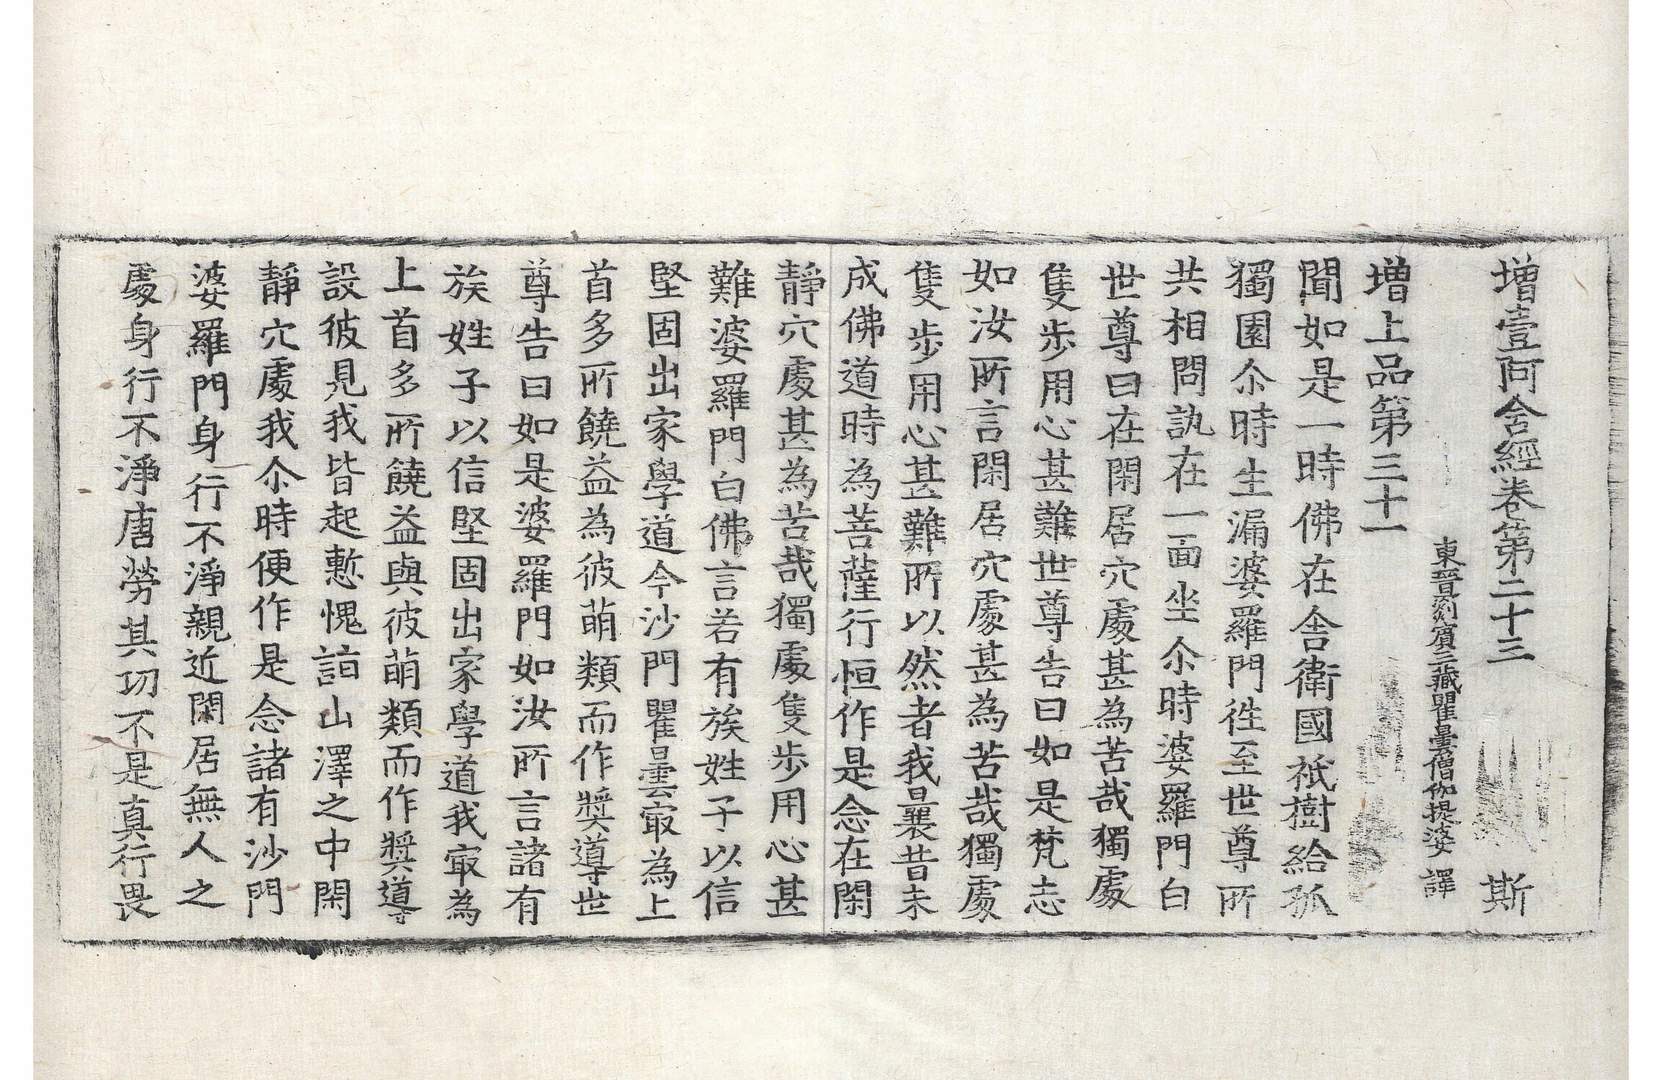 增壹阿含經卷第二十三 斯
東晉罽賓三藏瞿曇僧伽提婆 譯
增上品第三十一
聞如是一時佛在舍衛國祇樹給孤
獨園尒時生漏婆羅門往至世尊所
共相問訊在一面坐尒時婆羅門白
世尊曰在閑居穴處甚為苦哉獨處
隻步用心甚難世尊告曰如是梵志
如汝所言閑居穴處甚為苦哉獨處
隻步用心甚難所以然者我曩昔未
成佛道時為菩薩行恒作是念在閑
靜穴處甚為苦哉獨處隻步用心甚
難婆羅門白佛言若有族姓子以信
堅固出家學道今沙門瞿曇冣為上
首多所饒益為彼萌類而作獎導世
尊告曰如是婆羅門如汝所言諸有
族姓子以信堅固出家學道我冣為
上首多所饒益與彼萌類而作獎導
設彼見我皆起慙愧詣山澤之中閑
靜穴處我尒時便作是念諸有沙門
婆羅門身行不淨親近閑居無人之
處身行不淨唐勞其功不是真行畏